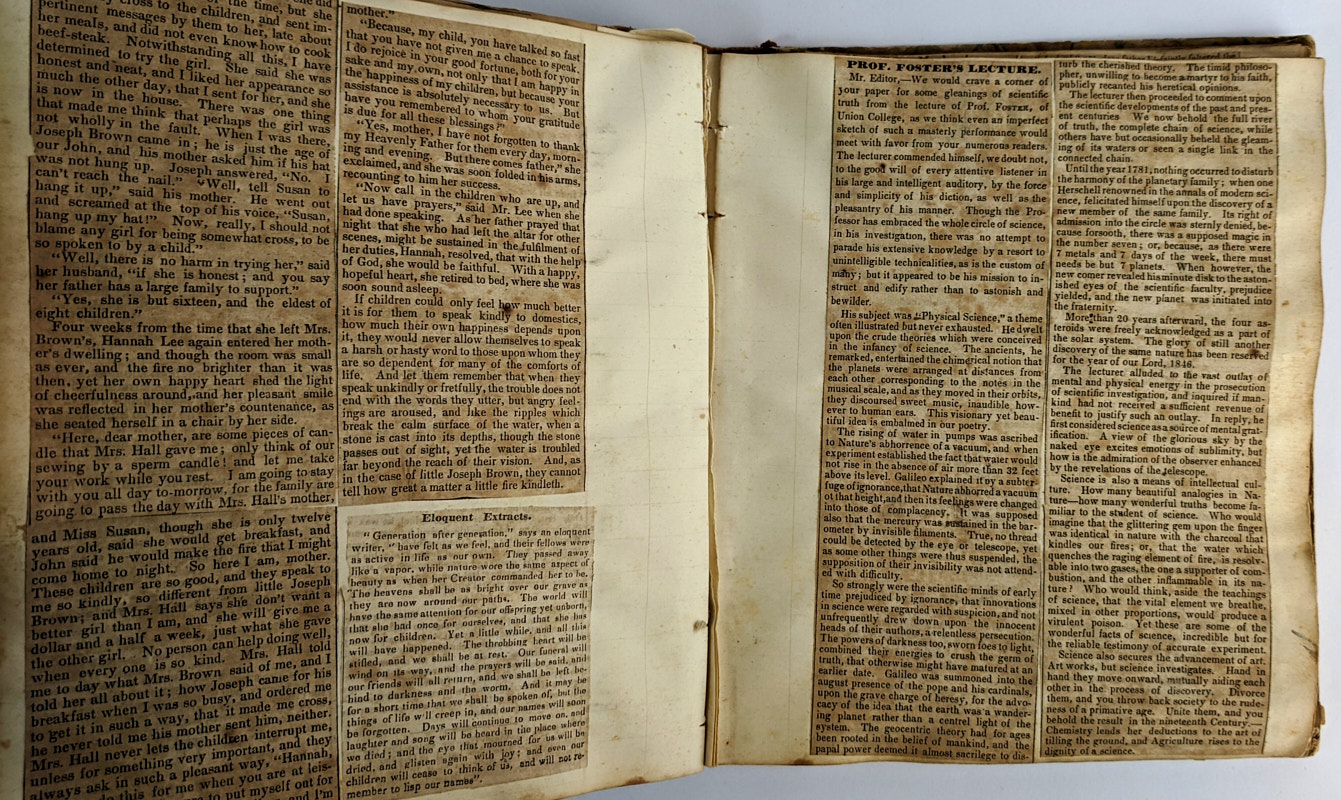 the time, but she
cross to the children, and sent im-
pertinent messages by them to her, late about
her meals, and did not even know how to cook
beef-steak. Notwithstanding all this, I have
determined to try the girl. She said she was
honest and neat, and I liked her appearance so
much the other day, that I sent for her, and she
is now in the house. There was one thing
that made me think that perhaps the girl was
not wholly in the fault. When I was there,
Joseph Brown came in; he is just the age of
our John, and his mother asked him if his hat
was not hung up. Joseph answered, “No. I
can't reach the nail.” “Well, tell Susan to
hang it up,” said his mother. He went out
and screamed at the top of his voice, “Susan,
hang up my hat!” Now, really, I should not
blame any girl for being somewhat cross, to be
so spoken to by a child.”
“Well, there is no harm in trying her,” said
her husband, “if she is honest; and you say
her father has a large family to support.”
“Yes, she is but sixteen, and the eldest of
eight children.”
Four weeks from the time that she left Mrs.
Brown's, Hannah Lee again entered her moth-
er's dwelling; and though the room was small
as ever, and the fire no brighter than it was
then, yet her own happy heart shed the light
of cheerfulness around, and her pleasant smile
was reflected in her mother's countenance, as
she seated herself in a chair by her side.
“Here, dear mother, are some pieces of can-
dle that Mrs. Hall gave me; only think of our
sewing by a sperm candle! and let me take
your work while you rest. I am going to stay
with you all day to-morrow, for the family are
going to pass the day with Mrs. Hall's mother,
and Miss Susan, though she is only twelve
years old, said she would get breakfast, and
John said he would make the fire that I might
come home to night. So here I am, mother.
These children are so good, and they speak to
me so kindly, so different from little Joseph
Brown; and Mrs. Hall says she don't want a
better girl than I am, and she will give me a
dollar and a half a week, just what she gave
the other girl. No person can help doing well,
when every one is so kind. Mrs. Hall told
me to day what Mrs. Brown said of me, and I
told her all about it; how Joseph came for his
breakfast when I was so busy, and ordered me
to get it in such a way, that it made me cross,
he never told me his mother sent him, neither.
Mrs. Hall never lets the children interrupt me,
unless for something very important, and they
always ask in such a pleasant way, “Hannah,
do this for me when you are at leis-
to put myself out for
and I'm
mother.”
“Because, my child, you have talked so fast
that you have not given me a chance to speak.
I do rejoice in your good fortune, both for your
sake and my own, not only that I am happy in
the happiness of my children, but because your
assistance is absolutely necessary to us. But
have you remembered to whom your gratitude
is due for all these blessings?”
“Yes, mother, I have not forgotten to thank
my Heavenly Father for them every day, morn-
ing and evening. But there comes father,” she
exclaimed, and she was soon folded in his arms,
recounting to him her success.
“Now call in the children who are up, and
let us have prayers,” said Mr. Lee when she
had done speaking. As her father prayed that
night that she who had left the altar for other
scenes, might be sustained in the fulfilment of
her duties, Hannah, resolved, that with the help
of God, she would be faithful. With a happy,
hopeful heart, she retired to bed, where she was
soon sound asleep.
If children could only feel how much better
it is for them to speak kindly to domestics,
how much their own happiness depends upon
it, they would never allow themselves to speak
a harsh or hasty word to those upon whom they
are so dependent for many of the comforts of
life. And let them remember that when they
speak unkindly or fretfully, the trouble does not
end with the words they utter, but angry feel-
ings are aroused, and like the ripples which
break the calm surface of the water, when a
stone is cast into its depths, though the stone
passes out of sight, yet the water is troubled
far beyond the reach of their vision. And, as
in the case of little Joseph Brown, they cannot
tell how great a matter a little fire kindleth.
Eloquent Extracts.
“Generation after generation,” says an eloquent
writer, “have felt as we feel, and their fellows were
as active in life as our own. They passed away
like a vapor, while nature wore the same aspect of
beauty as when her Creator commanded her to be.
The heavens shall be as bright over our grave as
they are now around our paths. The world will
have the same attention for our offspring yet unborn,
that she had once for ourselves, and that she has
now for children. Yet a little while, and all this
will have happened. The throbbing heart will be
stifled, and we shall be at rest. Our funeral will
wind on its way, and the prayers will be said, and
our friends will all return, and we shall be left be-
hind to darkness and the worm. And it may be
for a short time that we shall be spoken of, but the
things of life will creep in, and our names will soon
be forgotten. Days will continue to move on, and
laughter and song will be heard in the place where
we died; and the eye that mourned for us will be
dried, and glisten again with joy; and even our
children will cease to think of us, and will not re-
member to lisp our names”.
PROF. FOSTER'S LECTURE.
Mr. Editor,—We would crave a corner of
your paper for some gleanings of scientific
truth from the lecture of Prof. FOSTER, of
Union College, as we think even an imperfect
sketch of such a masterly performance would
meet with favor from your numerous readers.
The lecturer commended himself, we doubt not,
to the good will of every attentive listener in
his large and intelligent auditory, by the force
and simplicity of his diction, as well as the
pleasantry of his manner. Though the Pro-
fessor has embraced the whole circle of science,
in his investigation, there was no attempt to
parade his extensive knowledge by a resort to
unintelligible technicalities, as is the custom of
many; but it appeared to be his mission to in-
struct and edify rather than to astonish and
bewilder.
His subject was “Physical Science,” a theme
often illustrated but never exhausted. He dwelt
upon the crude theories which were conceived
in the infancy of science. The ancients, he
remarked, entertained the chimerical notion that
the planets were arranged at distances from
each other corresponding to the notes in the
musical scale, and as they moved in their orbits,
they discoursed sweet music, inaudible, how-
ever to human ears. This visionary yet beau-
tiful idea is embalmed in our poetry.
The rising of water in pumps was ascribed
to Nature's abhorrence of a vacuum, and when
experiment established the fact that water would
not rise in the absence of air more than 32 feet
above its level. Galileo explained it by a subter-
fuge of ignorance, that Nature abhorred a vacuum
at that height, and then its feelings were changed
into those of complacency. It was supposed
also that the mercury was sustained in the bar-
ometer by invisible filaments. True, no thread
could be detected by the eye or telescope, yet
as some other things were thus suspended, the
supposition of their invisibility was not attend-
ed with difficulty.
So strongly were the scientific minds of early
time prejudiced by ignorance, that innovations
in science were regarded with suspicion, and not
unfrequently drew down upon the innocent
heads of their authors, a relentless persecution.
The powers of darkness too, sworn foes to light,
combined their energies to crush the germ of
truth, that otherwise might have matured at an
earlier date. Galileo was summoned into the
august presence of the pope and his cardinals,
upon the grave charge of heresy, for the advo-
cacy of the idea that the earth was a wander-
ing planet rather than a centrel light of the
system. The geocentric theory had for ages
been rooted in the belief of mankind, and the
papal power deemed it almost sacrilege to dis-
turb the cherished theory. The timid philoso-
pher, unwilling to become a martyr to his faith,
publicly recanted his heretical opinions.
The lecturer then proceeded to comment upon
the scientific developments of the past and pres-
ent centuries We now behold the full river
of truth, the complete chain of science, while
others have but occasionally beheld the gleam-
ing of its waters or seen a single link in the
connected chain.
Until the year 1781, nothing occurred to disturb
the harmony of the planetary family; when one
Herschell renowned in the annals of modern sci-
ence, felicitated himself upon the discovery of a
new member of the same family. Its right of
admission into the circle was sternly denied, be-
cause forsooth, there was a supposed magic in
the number seven; or, because, as there were
7 metals and 7 days of the week, there must
needs be but 7 planets. When however, the
new comer revealed his minute disk to the aston-
ished eyes of the scientific faculty, prejudice
yielded, and the new planet was initiated into
the fraternity.
More than 20 years afterward, the four as-
teroids were freely acknowledged as a part of
the solar system. The glory of still another
discovery of the same nature has been reserved
for the year of our Lord, 1846.
The lecturer alluded to the vast outlay of
mental and physical energy in the prosecution
of scientific investigation, and inquired if man-
kind had not received a sufficient revenue of
benefit to justify such an outlay. In reply, he
first considered science as a source of mental grat-
ification. A view of the glorious sky by the
naked eye excites emotions of sublimity, but
how is the admiration of the observer enhanced
by the revelations of the telescope.
Science is also a means of intellectual cul-
ture. How many beautiful analogies in Na-
ture—how many wonderful truths become fa-
miliar to the student of science. Who would
imagine that the glittering gem upon the finger
was identical in nature with the charcoal that
kindles our fires; or, that the water which
quenches the raging element of fire, is resolv-
able into two gases, the one a supporter of com-
bustion, and the other inflammable in its na-
ture? Who would think, aside the teachings
of science, that the vital element we breathe,
mixed in other proportions, would produce a
virulent poison. Yet these are some of the
wonderful facts of science, incredible but for
the reliable testimony of accurate experiment.
Science also secures the advancement of art.
Art works, but science investigates. Hand in
hand they move onward, mutually aiding each
other in the process of discovery. Divorce
them, and you throw back society to the rude-
ness of a primative age. Unite them, and you
behold the result in the nineteenth Century.—
Chemistry lends her deductions to the art of
tilling the ground, and Agriculture rises to the
dignity of a science.